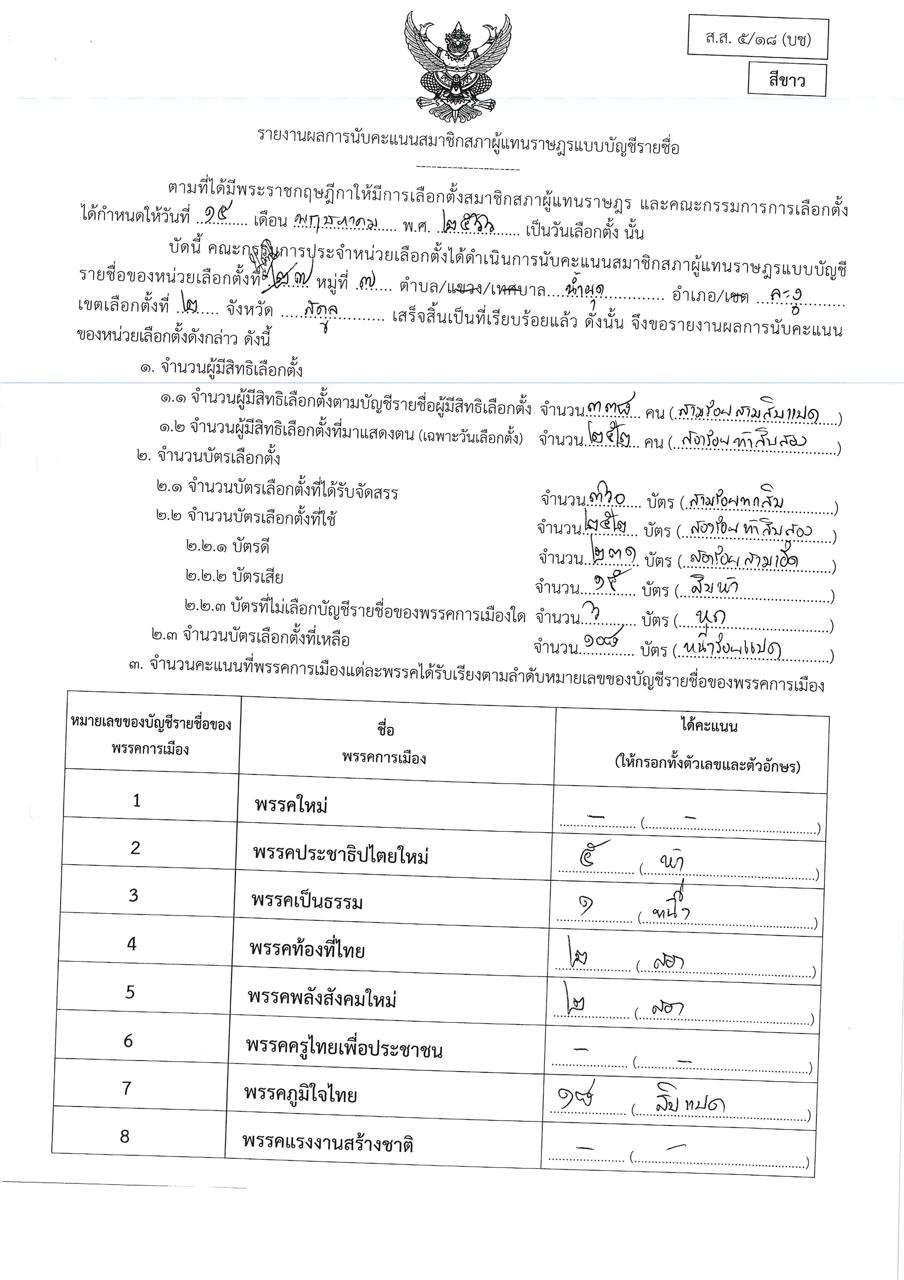 ส.ส. ๕/๑๘ (บช)
สีขาว
รายงานผลการนับคะแนนสมาชิกสภาผู้แทนราษฎรแบบบัญชีรายชื่อ
ตามที่ได้มีพระราชกฤษฎีกาให้มีการเลือกตั้งสมาชิกสภาผู้แทนราษฎร และคณะกรรมการการเลือกตั้ง
ได้กำหนดให้วันที่ ๑๔ เดือน พฤษภาคม พ.ศ. ๒๕๖๖ เป็นวันเลือกตั้ง นั้น
บัดนี้ คณะกรรมการประจำหน่วยเลือกตั้งได้ดำเนินการนับคะแนนสมาชิกสภาผู้แทนราษฎรแบบบัญชี
รายชื่อของหน่วยเลือกตั้งที่ หมู่ที่ ๗ ตำบล/แขวง/เทศบาล น้ำผุด อำเภอ/เขต ละงู
เขตเลือกตั้งที่ ๒ จังหวัด สตูล เสร็จสิ้นเป็นที่เรียบร้อยแล้ว ดังนั้น จึงขอรายงานผลการนับคะแนน
ของหน่วยเลือกตั้งดังกล่าว ดังนี้
๑. จำนวนผู้มีสิทธิเลือกตั้ง
๑.๑ จำนวนผู้มีสิทธิเลือกตั้งตามบัญชีรายชื่อผู้มีสิทธิเลือกตั้ง จำนวน ๓๓๘ คน (สามร้อยสามสิบแปด)
๑.๒ จำนวนผู้มีสิทธิเลือกตั้งที่มาแสดงตน (เฉพาะวันเลือกตั้ง) จำนวน ๒๕๒ คน (สองร้อยห้าสิบสอง)
๒. จำนวนบัตรเลือกตั้ง
๒.๑ จำนวนบัตรเลือกตั้งที่ได้รับจัดสรร จำนวน ๓๖๐ บัตร (สามร้อยหกสิบ)
๒.๒ จำนวนบัตรเลือกตั้งที่ใช้ จำนวน ๒๕๒ บัตร (สองร้อยห้าสิบสอง)
๒.๒.๑ บัตรดี จำนวน ๒๓๑ บัตร (สองร้อยสามเอ็ด)
๒.๒.๒ บัตรเสีย จำนวน ๑๕ บัตร (สิบห้า)
๒.๒.๓ บัตรที่ไม่เลือกบัญชีรายชื่อของพรรคการเมืองใด จำนวน ๖ บัตร (หก)
๒.๓ จำนวนบัตรเลือกตั้งที่เหลือ จำนวน ๑๐๘ บัตร (หนึ่งร้อยแปด)
๓. จำนวนคะแนนที่พรรคการเมืองแต่ละพรรคได้รับเรียงตามลำดับหมายเลขของบัญชีรายชื่อของพรรคการเมือง
หมายเลขของบัญชีรายชื่อของพรรคการเมือง ชื่อพรรคการเมือง ได้คะแนน (ให้กรอกทั้งตัวเลขและตัวอักษร)
1 พรรคใหม่ – ( – )
2 พรรคประชาธิปไตยใหม่ ๕ ( ห้า )
3 พรรคเป็นธรรม ๑ ( หนึ่ง )
4 พรรคท้องที่ไทย ๒ ( สอง )
5 พรรคพลังสังคมใหม่ ๒ ( สอง )
6 พรรคครูไทยเพื่อประชาชน – ( – )
7 พรรคภูมิใจไทย ๑๘ ( สิบแปด )
8 พรรคแรงงานสร้างชาติ – ( – )